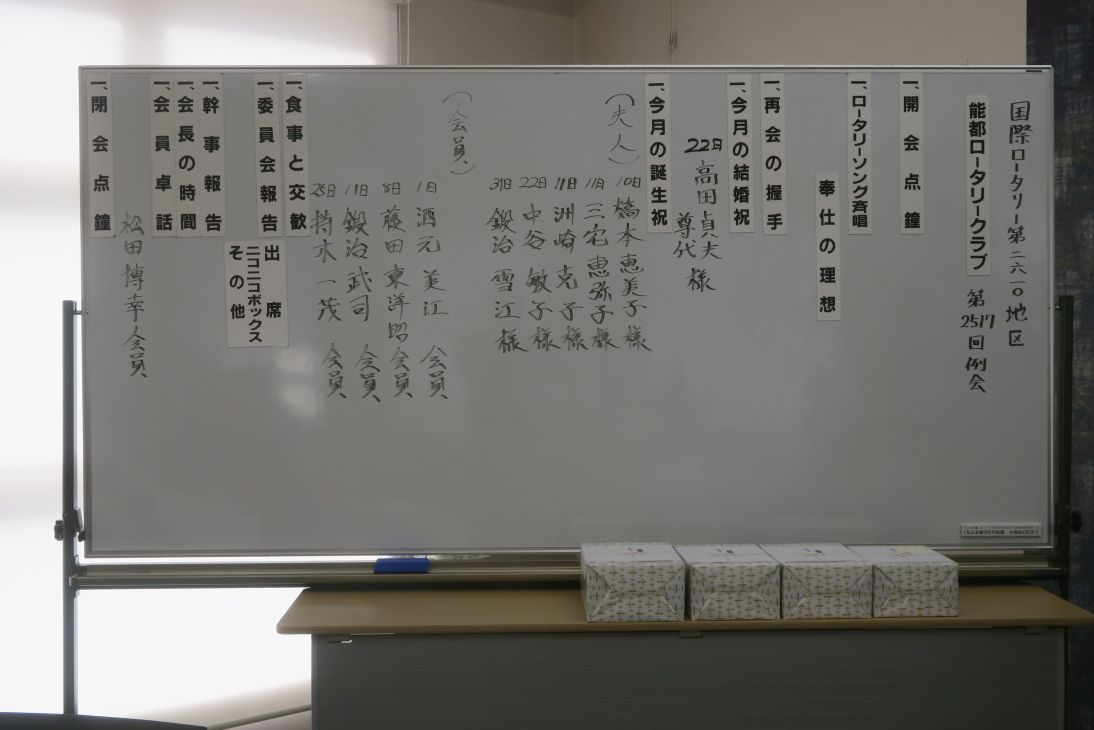 国際ロータリー第二六一〇地区
能都ロータリークラブ 第2517回例会
一、開会点鐘
一、ロータリーソング斉唱
奉仕の理想
一、再会の握手
一、今月の結婚祝
22日 高田貞夫
尊代 様
一、今月の誕生祝
(夫人)
10日 橋本恵美子様
11日 三宅恵弥子様
11日 洲崎克子様
22日 中谷敏子様
31日 鍛治雪江様
(会員)
1日 酒元美江 会員
8日 藤田東洋昭会員
11日 鍛治武司 会員
25日 持木一茂 会員
一、食事と交歓
一、委員会報告
出席
ニコニコボックス
その他
一、幹事報告
一、会長の時間
一、会員卓話
松田博幸会員
一、閉会点鐘